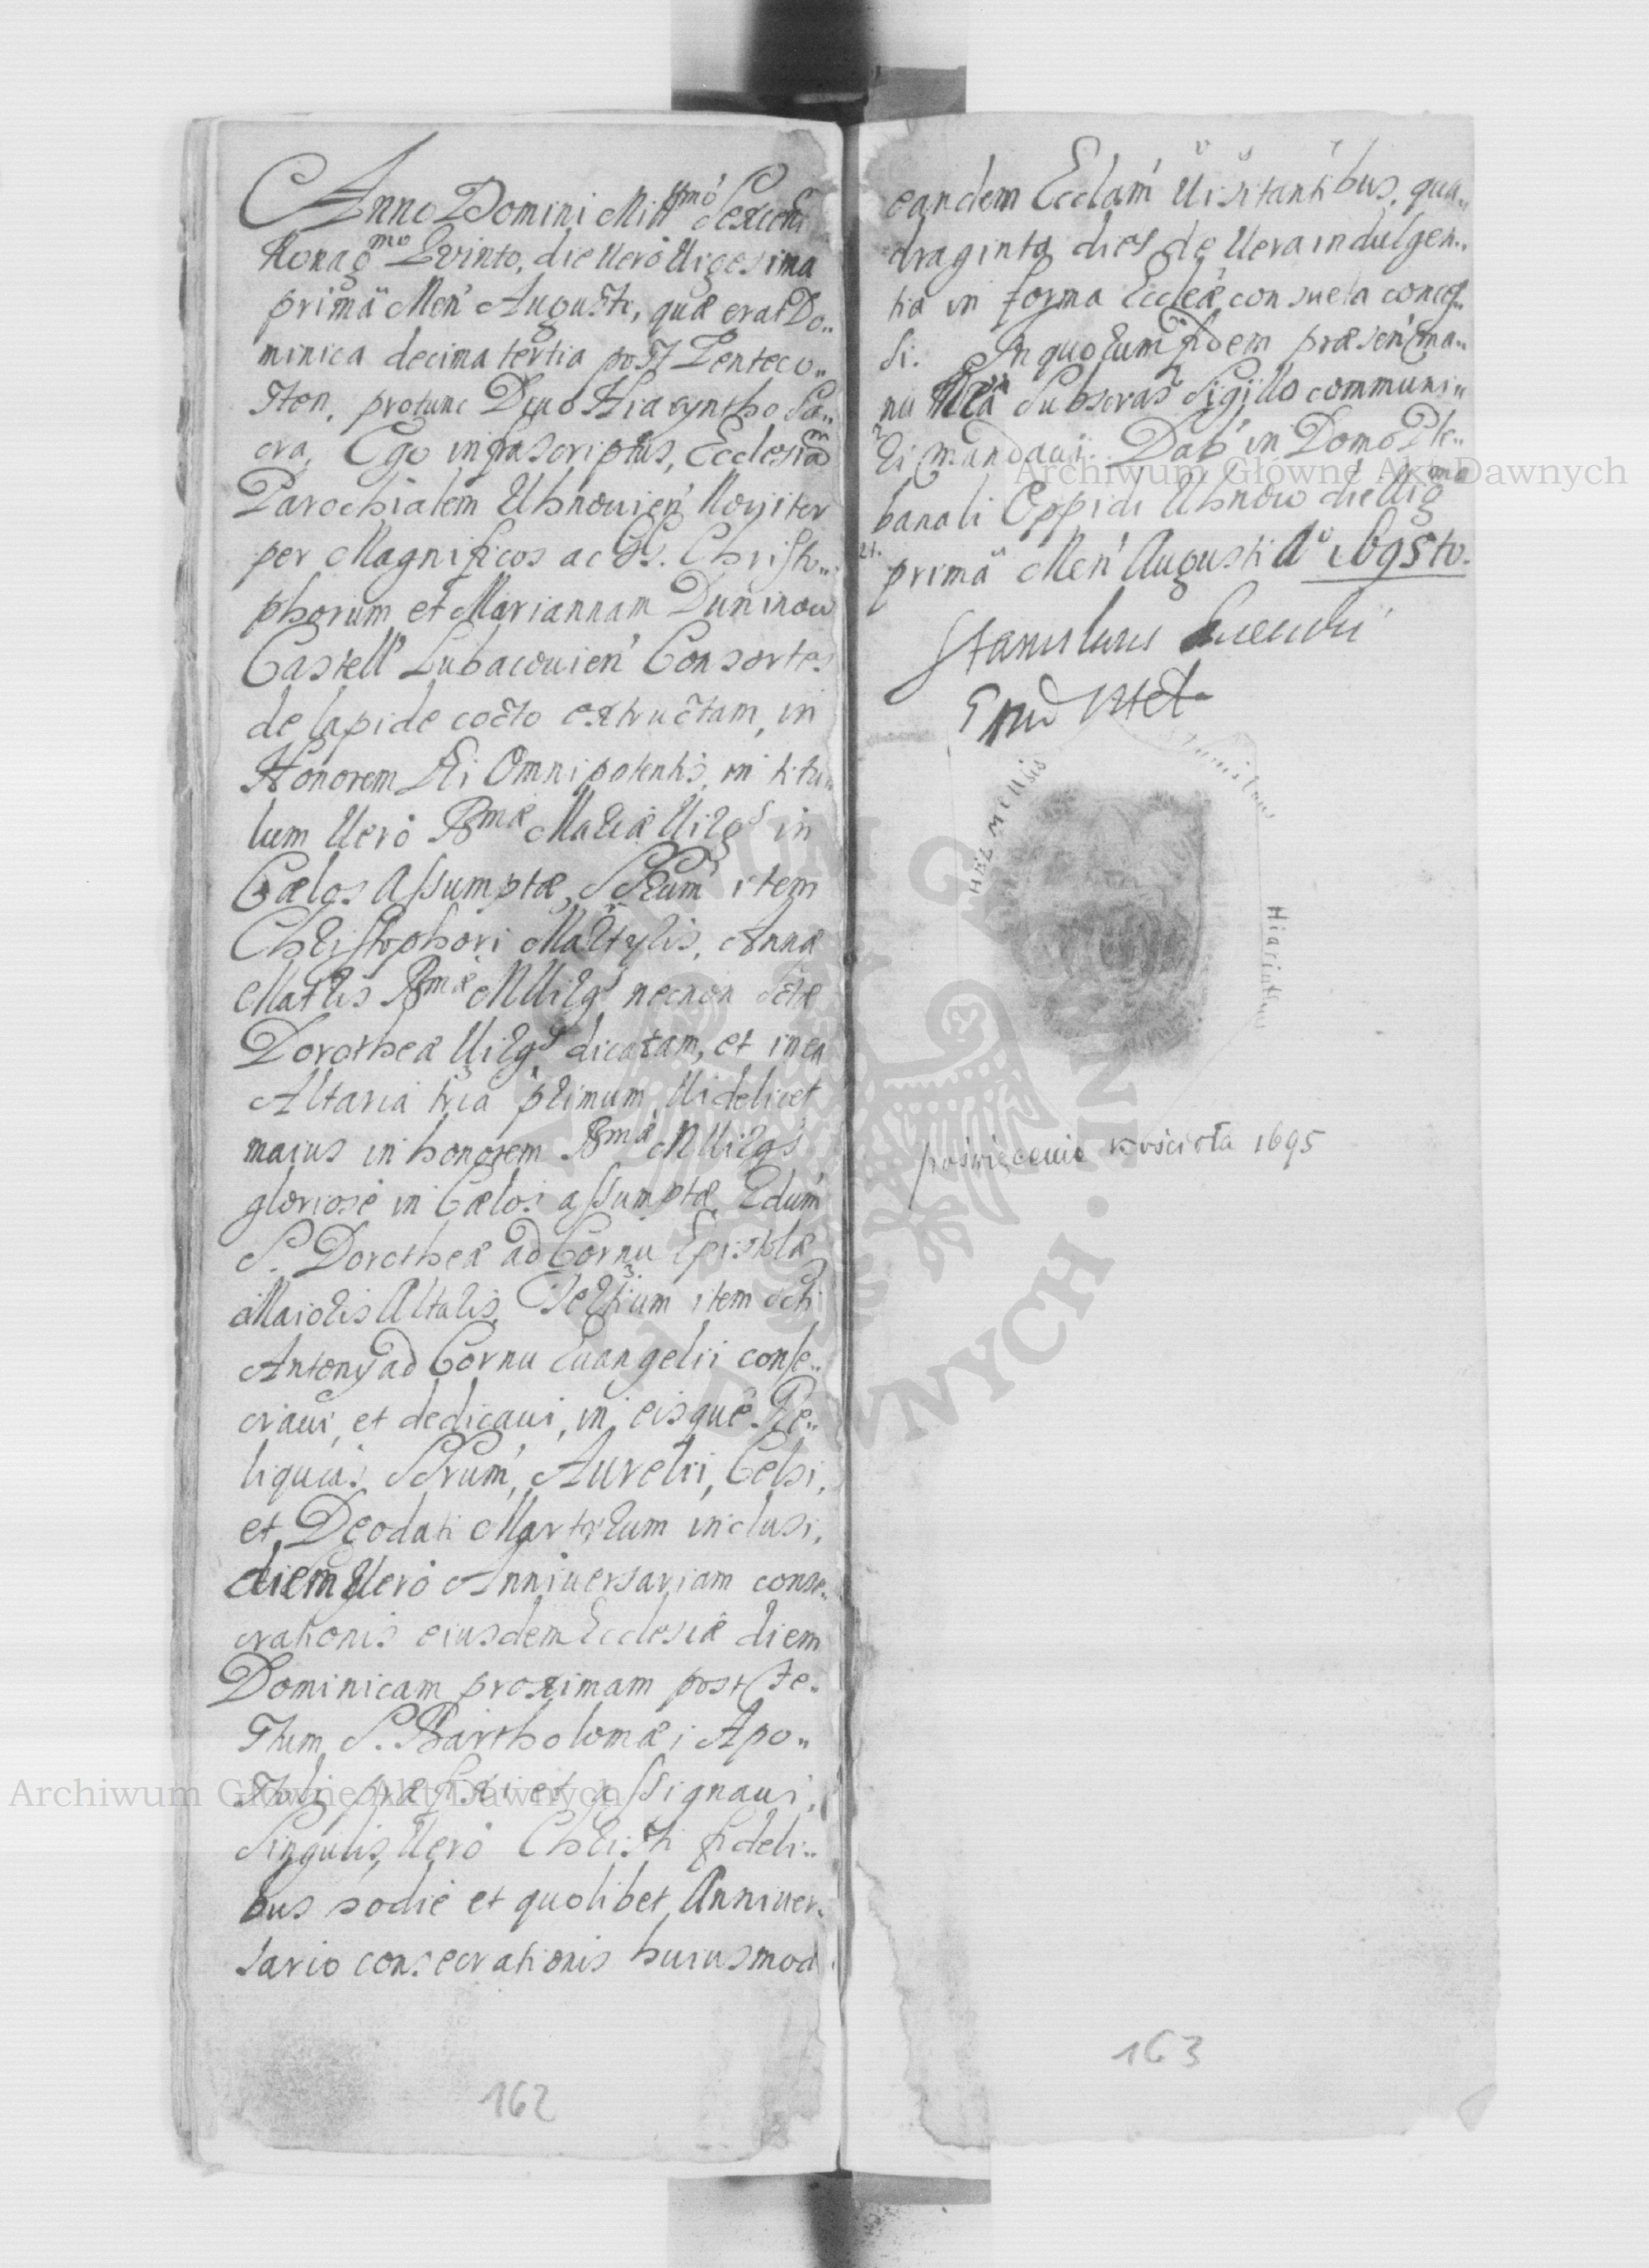 Anno Domini Mill̃mo Sexcen̄
Nonag̃mo Quinto, die Vero Vigesima
prima Men̄ Augusti, quæ erat Do„
minica decima tertia post Penteco„
sten, protunc Divo Hiacyntho Sa„
cra, Ego infrascriptus, Ecclesiam
Parochialem Uhnovien̄ Noviter
per Magnificos ac GG. Christo„
phorum et Mariannam Duninow
Castell̃ Lubacovien̄ Consortes
de lapide cocto extructam, in
Honorem Dei Omnipotentis, in titu„
lum Vero Bmæ Mariæ Virgs in
Cælos Assumptæ, SSrum item
Christophori Martyris, Annæ
Matris Bmæ M Virgs necnon Sctæ
Dorotheæ Virgs dicatam, et in ea
Altaria tria primum Videlicet
maius in honorem Bmæ M Virgs
gloriosè in Cælos assumptæ, 2dum
S. Dorotheæ ad Cornu Epistolæ
Maioris Altaris, 3. Tertium item Scti
Antonÿ ad Cornu Evangelii conse„
cravi, et dedicavi, in eisque Re„
liquias SSrum, Aurelii, Celsi,
et Deodati Martyrum inclusi,
diem Vero Anniversariam conse„
crationis eiusdem Ecclesiæ diem
Dominicam proximam post Fe„
stum S. Bartholomæi Apo„
stoli præfixi et assignavi,
Singulis Vero Christi fideli„
bus hodie et quolibet Anniver„
sario consecrationis huiusmod
162
eandem Ecclam Visitantibus, qua„
draginta dies de Vera indulgen„
tia in forma Ecclæ consueta conces„
si. In quorum fidem præsen̄ ma„
nu Mea Subscras Sigillo communi„
ri mandavi. Dat̄ in Domo Ple„
banali Oppidi Uhnow die Vigma
21. prima Men̄ Augusti Ao 1695to.
Stanislaus
Hiacinthus
poświęcenie kościoła 1695
163
Archiwum Główne Akt Dawnych
Archiwum Główne Akt Dawnych